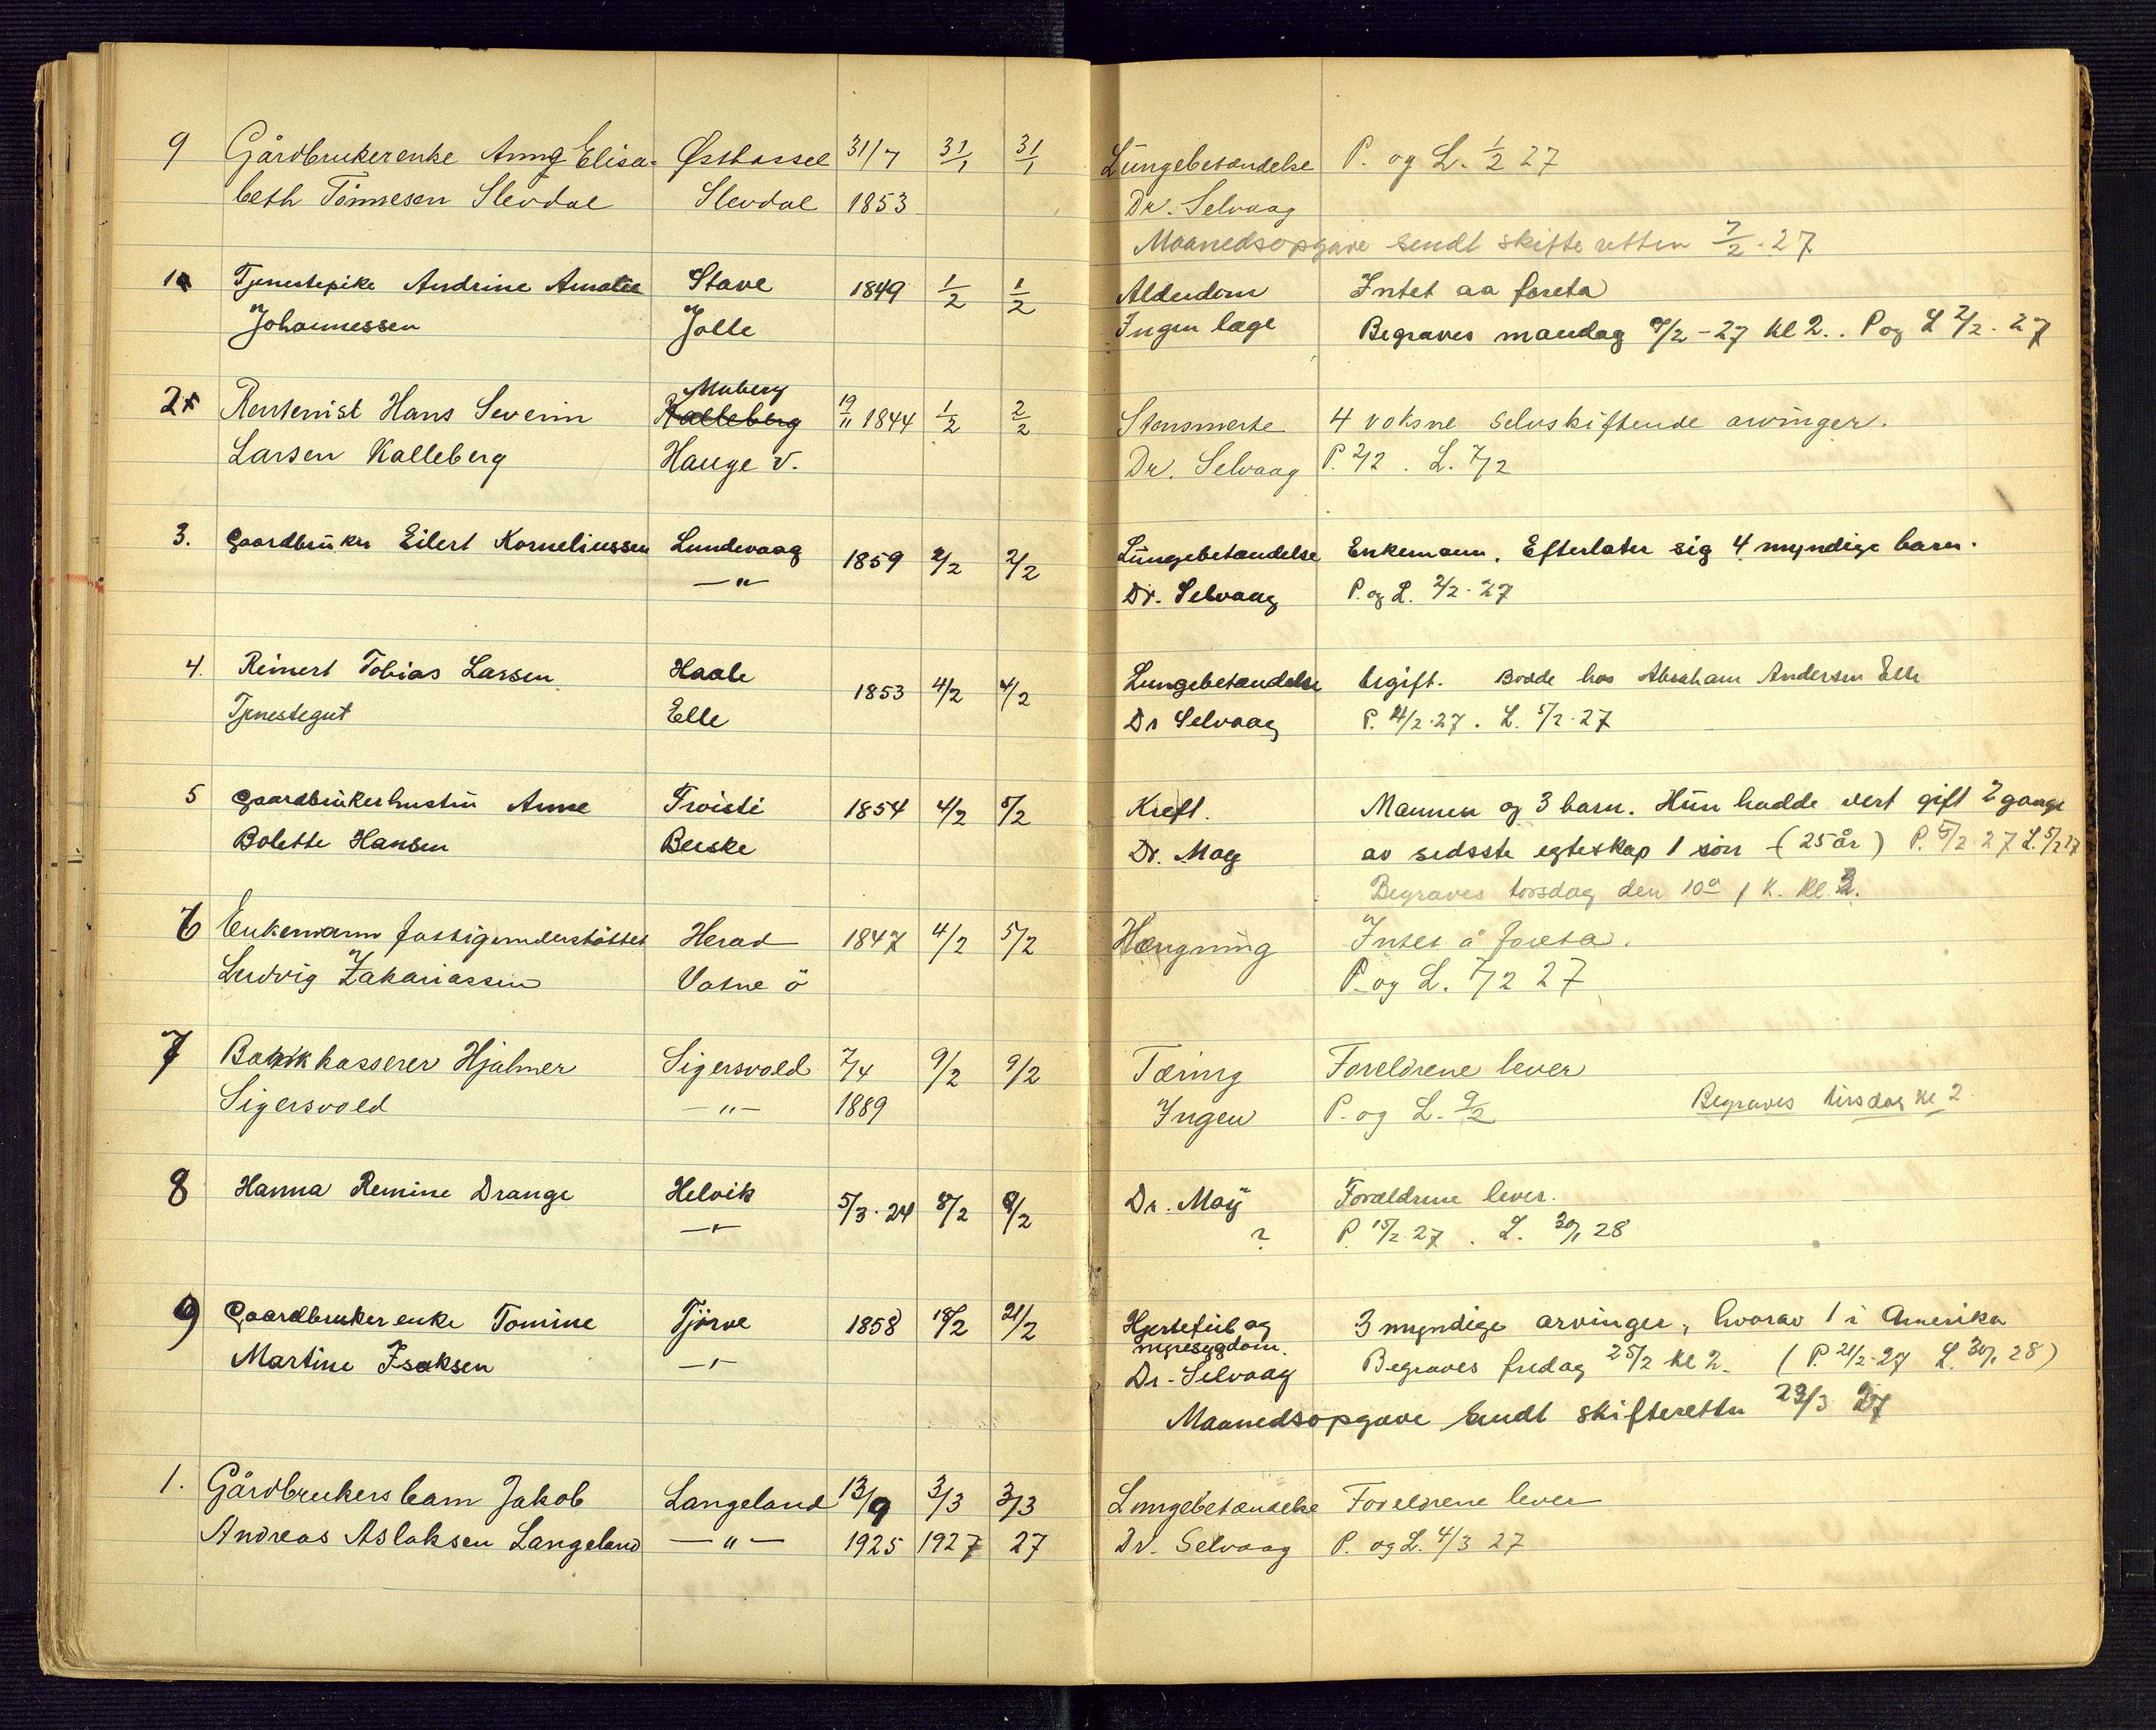 9 Gårdbrukerenke Anna Elisa- Østhassel 31/7 31/1 31/1 Lungebetændelse P. og L. 1/2 27
beth Tönnesen Slevdal Slevdal 1853 Dr. Selvaag
Maanedsopgave sendt skifteretten 7/2-27
1 Tjenestepike Andrine Amalie Stave 1849 1/2 1/2 Alderdom Intet aa foreta
Johannessen Jolle Ingen læge Begraves mandag 7/2-27 kl 2. P og L 2/2.27
Muberg
2 Rentenist Hans Severin Kalleberg 19/11 1844 1/2 2/2 Stensmerte 4 voksne selvskiftende arvinger.
Larsen Kalleberg Hauge v. Dr. Selvaag P. 2/2. L. 7/2
3. Gaardbruker Eilert Korneliussen Lundevaag 1859 2/2 2/2 Lungebetændelse Enkemann. Efterlater sig 4 myndige barn.
—"— Dr. Selvaag P. og L. 2/2-27
4. Reinert Tobias Larsen Haale 1853 4/2 4/2 Lungebetændelse Ugift. Bodde hos Abraham Andersen Elle
Tjenestegut Elle Dr Selvaag P. 4/2.27. L. 5/2.27
5 Gaardbrukerhustru Anne Tvoisti 1854 4/2 5/2 Kreft. Mannen og 3 barn. Hun hadde vert gift 2 gange
Bolette Hansen Berske Dr. May av sedsste egteskap 1 sön (25 år) P. 5/2 27 L. 5/2 27
Begraves torsdag den 10de K. kl. 2.
6 Enkemann fattigunderstöttet Herad 1847 4/2 5/2 Hængning Intet å foreta.
Ludvig Zakariassen Vatne ö P. og L. 7/2 27
7 Bankkasserer Hjalmer Sigersvold 7/4 9/2 9/2 Tæring Foreldrene lever
Sigersvold —"— 1889 Ingen P. og L. 9/2 Begraves tirsdag kl 2
8 Hanna Remine Drange Helvik 5/3.24 8/2 8/2 Dr. May Foreldrene lever.
—"— ? P. 15/2 27. L. 30/1 28
9 Gaardbrukerenke Tomine Tjörve 1858 18/2 21/2 Hjertefeil og 3 myndige arvinger, hvorav 1 i Amerika
nyresygdom.
Martine Isaksen —"— Dr. Selvaag Begraves fredag 25/2 kl 2. (P. 21/2-27 L. 30/1 28)
Maanedsopgave sendt skifteretten 23/3 27
1. Gårdbrukers barn Jakob Langeland 13/9 3/3 3/3 Lungebetændelse Foreldrene lever
Andreas Aslaksen Langeland —"— 1925 1927 27 Dr. Selvaag P. og L. 4/3 27